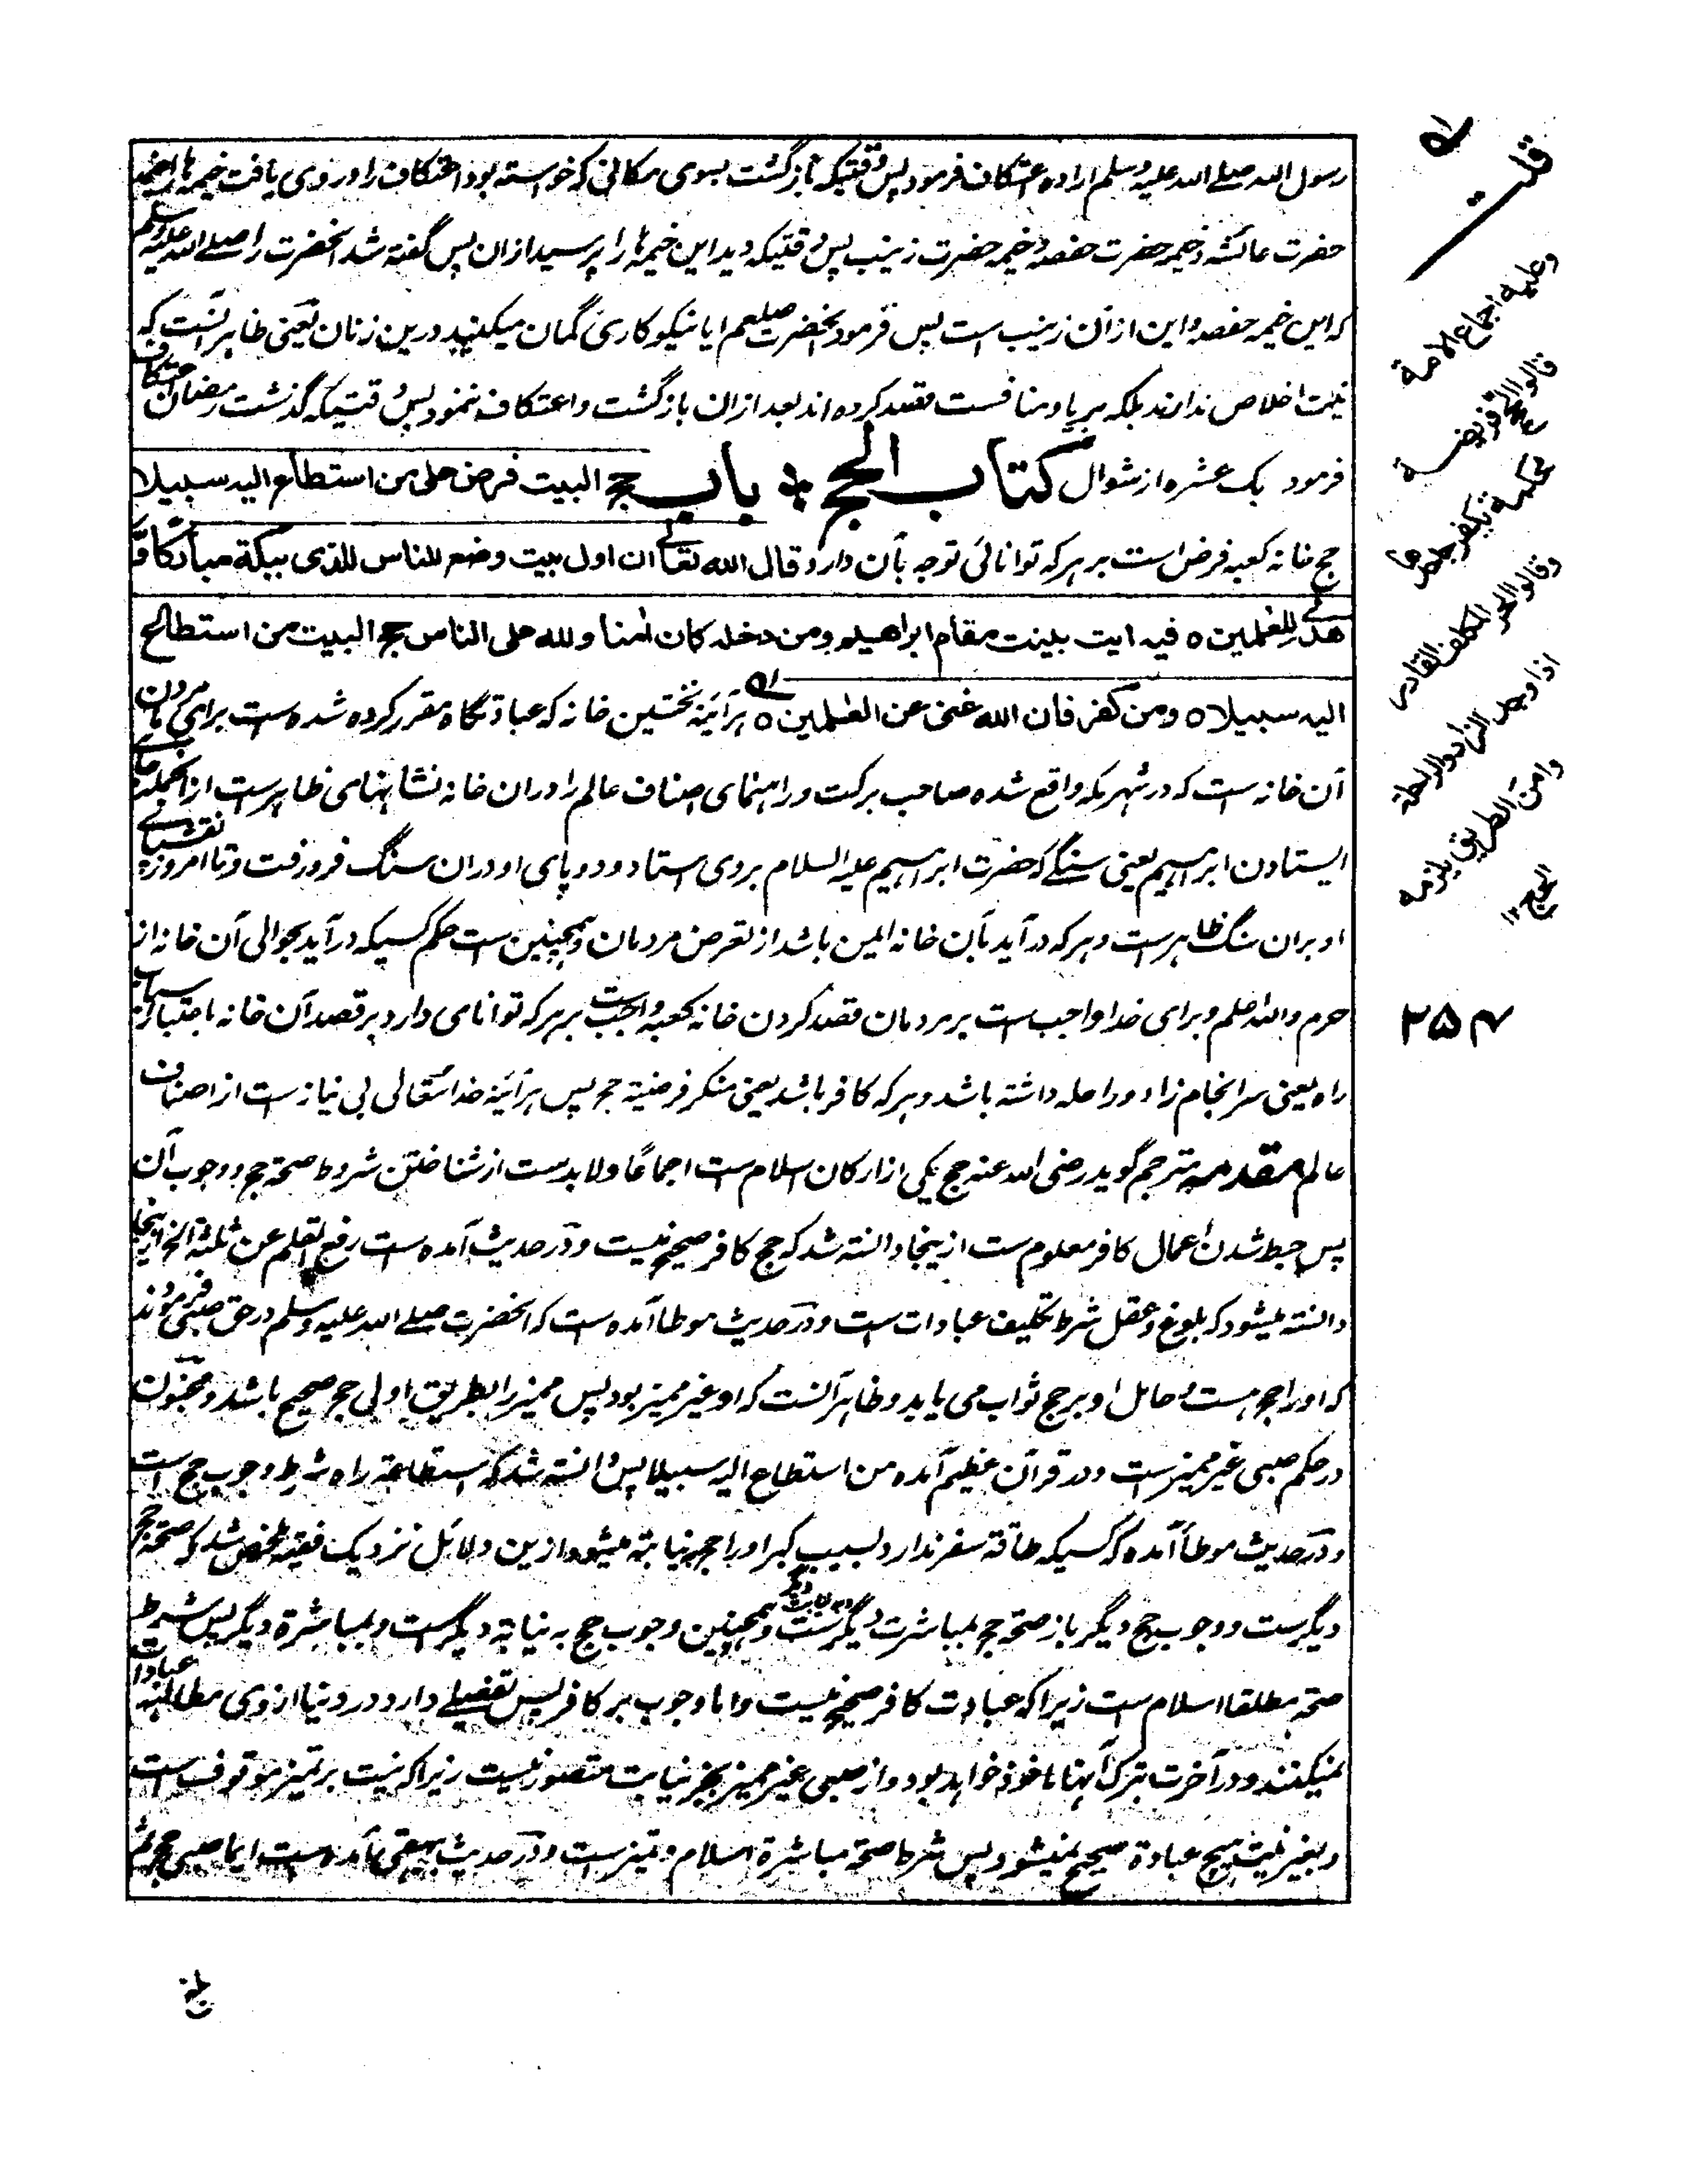 رسول الله صلے الله علیه وسلم اراده اعتکاف فرمود پس وقتیکه بازگشت بسوی مکانی که خواسته بود اعتکاف را در وی یافت خیمه ها را خیمه
حضرت عائشه و خیمه حضرت حفصه و خیمه حضرت زینب پس وقتیکه دید این خیمه ها را پرسید ازان پس گفته شد آنحضرت را صلے الله علیه وسلم
که این خیمه حفصه و این ازان زینب است پس فرمود آنحضرت صلعم ایا نیکوکاری گمان میکنید درین زنان یعنی ظاهر آنست که
نیت اخلاص ندارند بلکه بریا و منافست قصد کرده اند بعد ازان بازگشت و اعتکاف ننمود پس وقتیکه گذشت رمضان اعتکاف
فرمود یک عشره از شوال کتاب الحج ؞ باب حج البیت فرض علی من استطاع الیه سبیلا
حج خانه کعبه فرض است بر هر که توانائی توجه بآن دارد قال الله تعالے ان اول بیت وضع للناس للذی ببکة مبارکا وَّ
هدے للعلمین ٥ فیه ایت بینت مقام ابراهیم ومن دخله کان امنا ولله علی الناس حج البیت من استطاع
الیه سبیلا ٥ ومن کفر فان الله غنی عن العلمین ٥ هرآئینه نخستین خانه که عبادتگاه مقرر کرده شده است برای مردمان
آن خانه ست که در شهر مکه واقع شده صاحب برکت و راهنمای اصناف عالم را دران خانه نشانهای ظاهرست ازانجمله جائے
ایستادن ابراهیم یعنی سنگے که حضرت ابراهیم علیه السلام بروی استاد و دو پای او دران سنگ فرو رفت و تا امروز نقش پائے
او بران سنگ ظاهرست و هر که در آید بآن خانه ایمن باشد از تعرض مردمان و همچنین ست حکم کسیکه در آید بحوالی آن خانه از
حرم والله اعلم و برای خدا واجب ست بر مردمان قصد کردن خانه کعبه واجب است بر هر که توانای دارد بر قصد آن خانه باعتبار اسباب
راه یعنی سرانجام زاد و راحله داشته باشد و هر که کافر باشد یعنی منکر فرضیة حج پس هرآئینه خدائتعالی بی نیازست از اصناف
عالم مقدمه مترجم گوید رضی الله عنه حج یکی از ارکان اسلام ست اجماعا و لابدست از شناختن شروط صحة حج و وجوب آن
پس حبط شدن اعمال کافر معلوم ست ازینجا دانسته شد که حج کافر صحیح نیست و در حدیث آمده ست رفع القلم عن ثلثة الخ ازینجا
دانسته میشود که بلوغ و عقل شرط تکلیف عبادات ست و در حدیث موطا آمده ست که آنحضرت صلے الله علیه وسلم در حق صبی فرمودند
که او را حج هست و حامل او بر حج ثواب می یابد و ظاهر آنست که او غیر ممیز بود پس ممیز را بطریق اولی حج صحیح باشد و مجنون
در حکم صبی غیر ممیزست و در قرآن عظیم آمده من استطاع الیه سبیلا پس دانسته شد که استطاعة راه شرط وجوب حج است
و در حدیث موطا آمده که کسیکه طاقة سفر ندارد بسبب کبر او را حج بنیابة میشود ازین دلائل نزدیک فقیه ملخص شد که صحة حج
دیگرست و وجوب حج دیگر باز صحة حج بمباشرت دیگرست و به نیابت دیگر و همچنین وجوب حج به نیابة دیگرست و بمباشرة دیگر پس شرط
صحة مطلقا اسلام ست زیرا که عبادت کافر صحیح نیست و اما وجوب بر کافر پس تفصیلے دارد در دنیا از وی مطالبه عبادات
نمیکنند و در آخرت بترک آنها ماخوذ خواهد بود و از صبی غیر ممیز بجز نیابت متصور نیست زیرا که نیت بر تمیز موقوف است
و بغیر نیت هیچ عبادة صحیح نمیشود پس شرط صحة مباشرة اسلام و تمیزست و در حدیث بیهقی آمده ست ایما صبی حج ثم
بلغ
قلت
وعلیه اجماع الامة
قالوا الحج فریضة
محکمة یکفر جاحدها
وقالوا الحر المکلف القادر
اذا وجد الزاد والراحلة
وامن الطریق یلزمه
الحج ١٢
٢٥٤